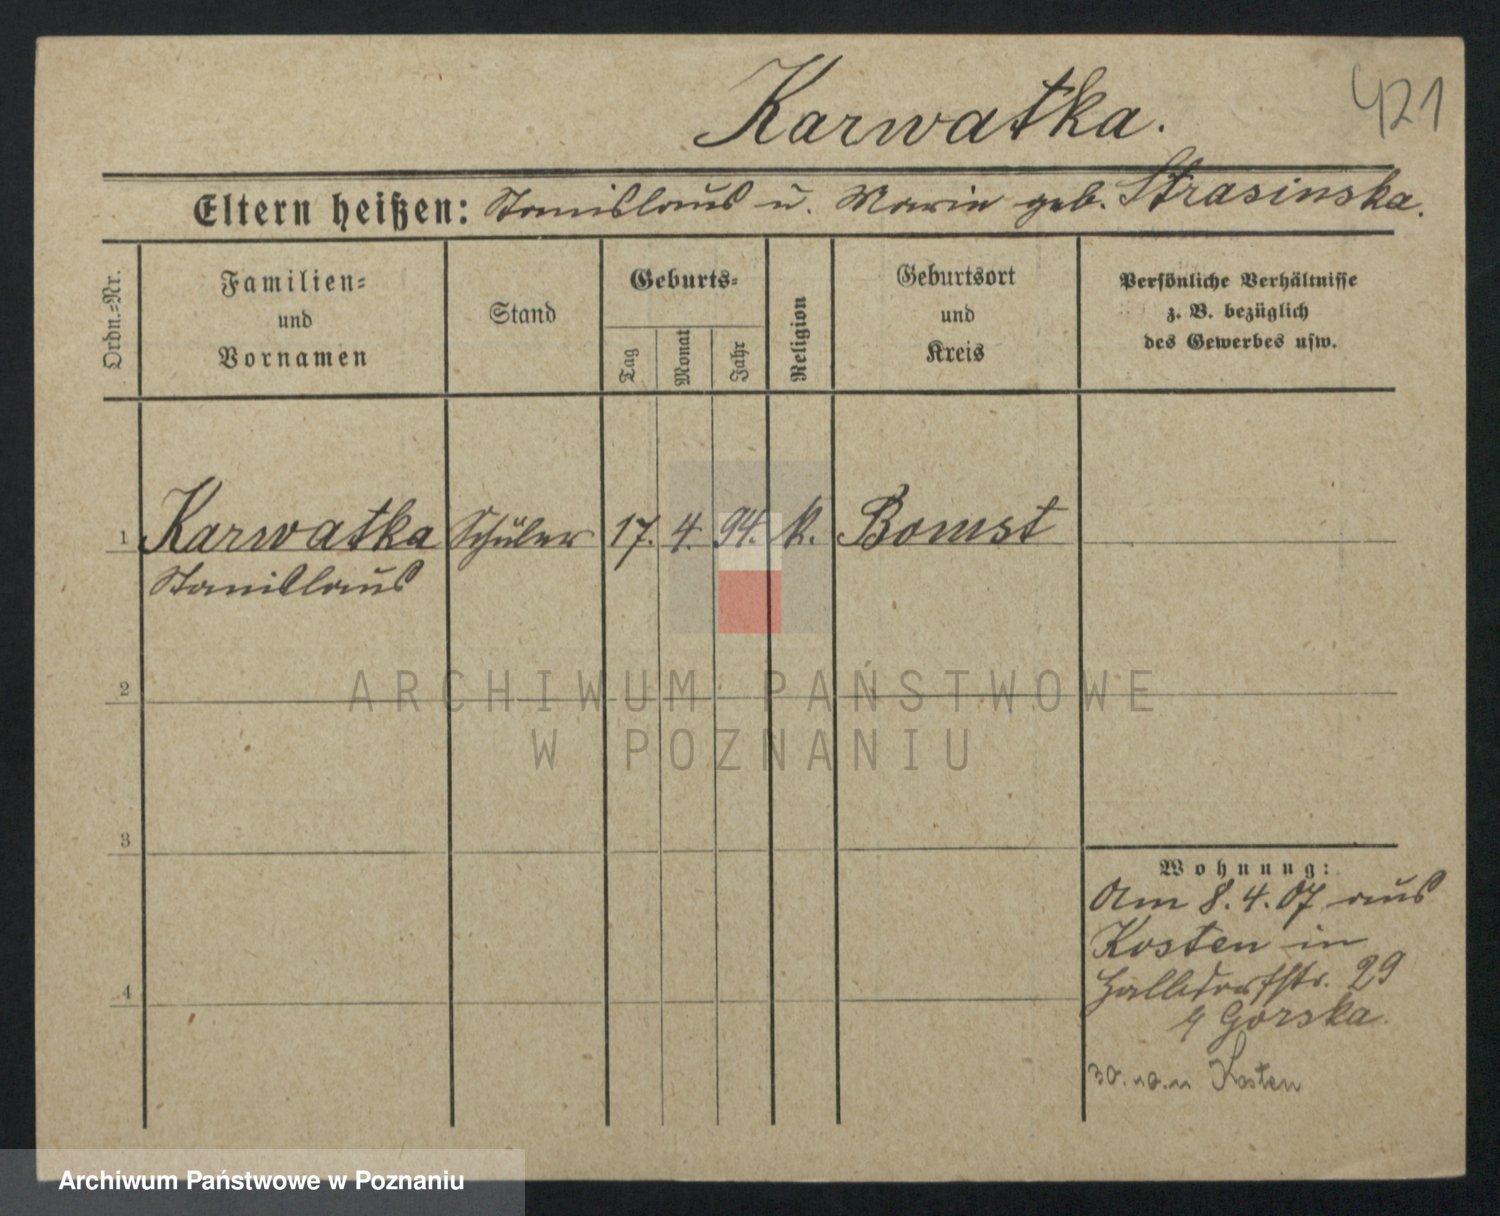 421
Karwatka.
Eltern heißen: Stanislaus u. Marie geb. Strasinska.
Ordn.=Nr.
Familien=
und
Vornamen
Stand
Geburts=
Tag
Monat
Jahr
Religion
Geburtsort
und
Kreis
Persönliche Verhältnisse
z. B. bezüglich
des Gewerbes usw.
1 Karwatka Schüler 17. 4. 94. k. Bomst
Stanislaus
ARCHIWUM PAŃSTWOWE
W POZNANIU
2
3
4
Wohnung:
Am 8. 4. 07 aus
Kosten in
29
Gorska.
30. Kosten
Archiwum Państwowe w Poznaniu